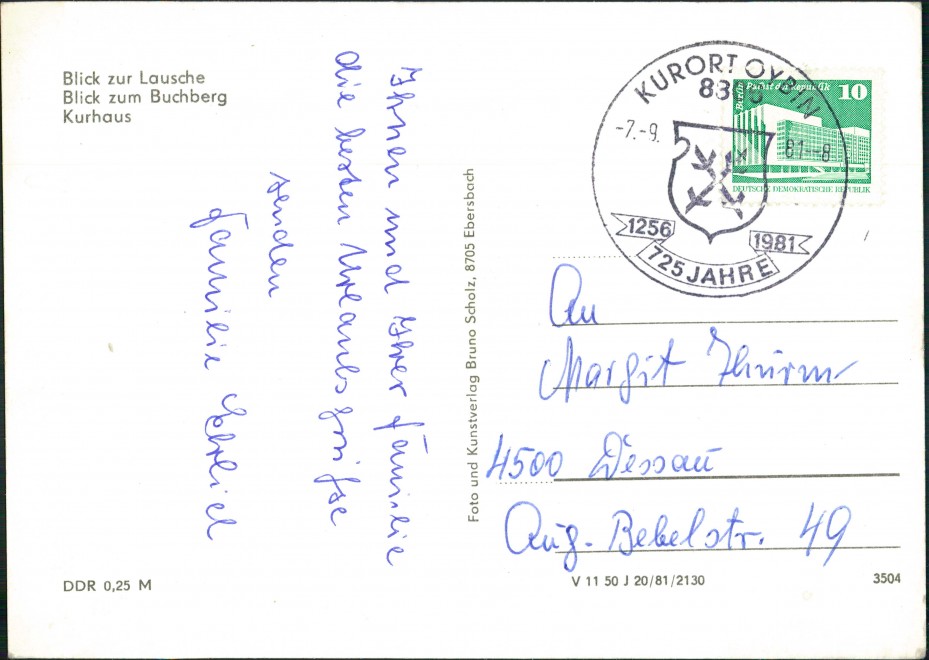 Blick zur Lausche
Blick zum Buchberg
Kurhaus
Ihnen und Ihrer Familie
die besten Urlaubsgrüße
senden
Familie Ehrlich
DDR 0,25 M
Foto und Kunstverlag Bruno Scholz, 8705 Ebersbach
KURORT OYBIN
-7.-9.
81--8
1256
1981
725 JAHRE
Berlin, Palast der Republik
10
DEUTSCHE DEMOKRATISCHE REPUBLIK
An
Margit Thürm
4500 Dessau
Aug.-Bebelstr. 49
V 11 50 J 20/81/2130
3504